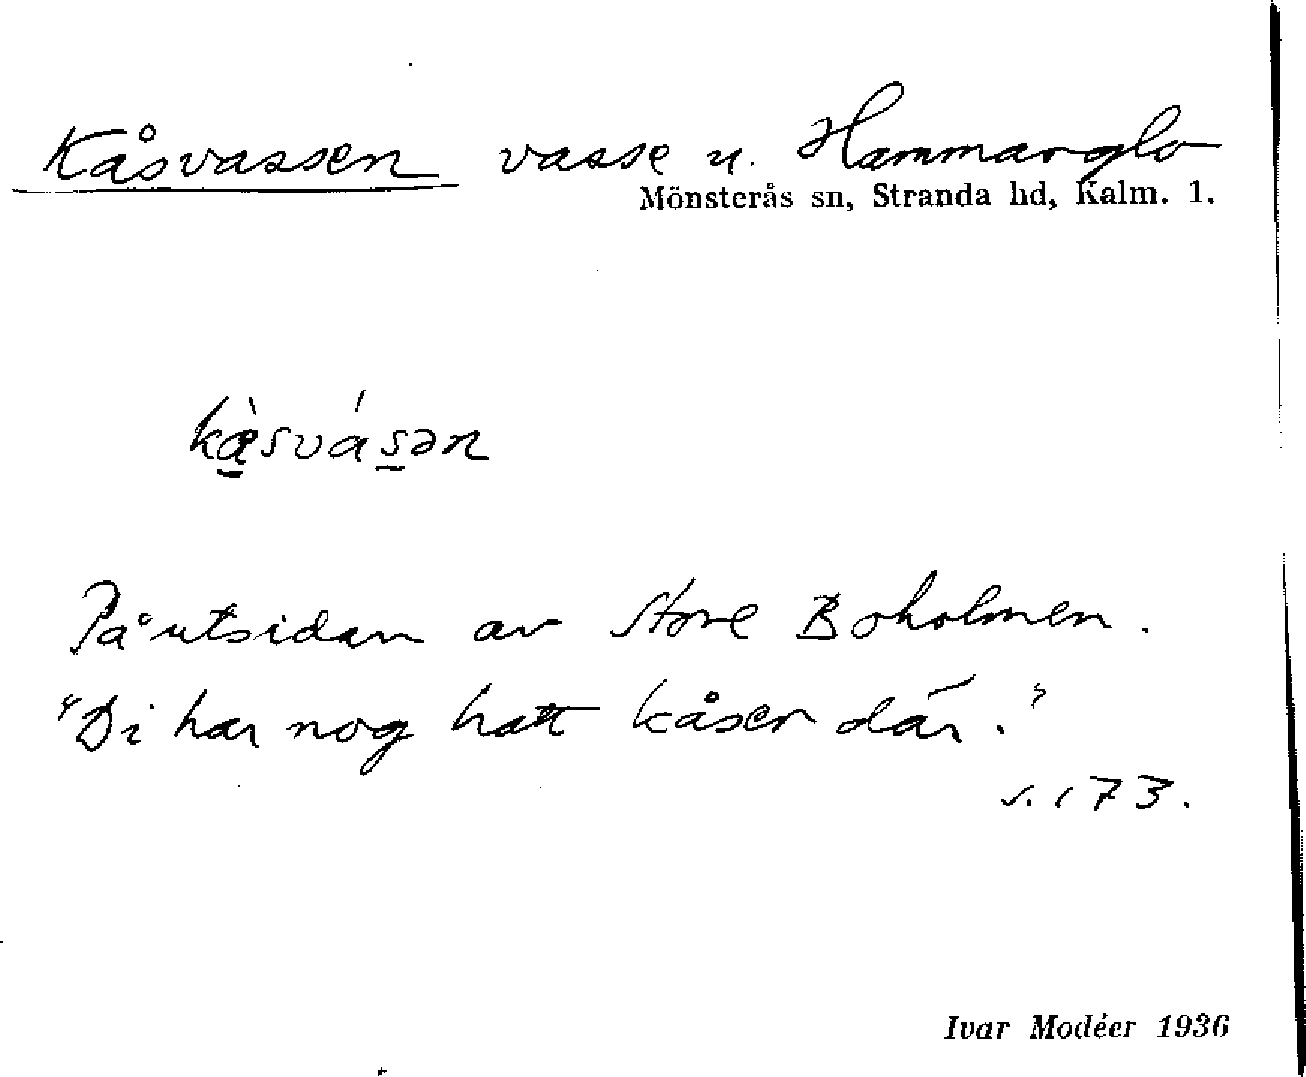 Kåsvassen vasse u. Hammarglo
Mönsterås sn, Stranda hd, Kalm. l.
kåsvasən
På utsidan av Store Boholmen.
"Di har nog hatt kåser där."
s. 173.
Ivar Modéer 1936